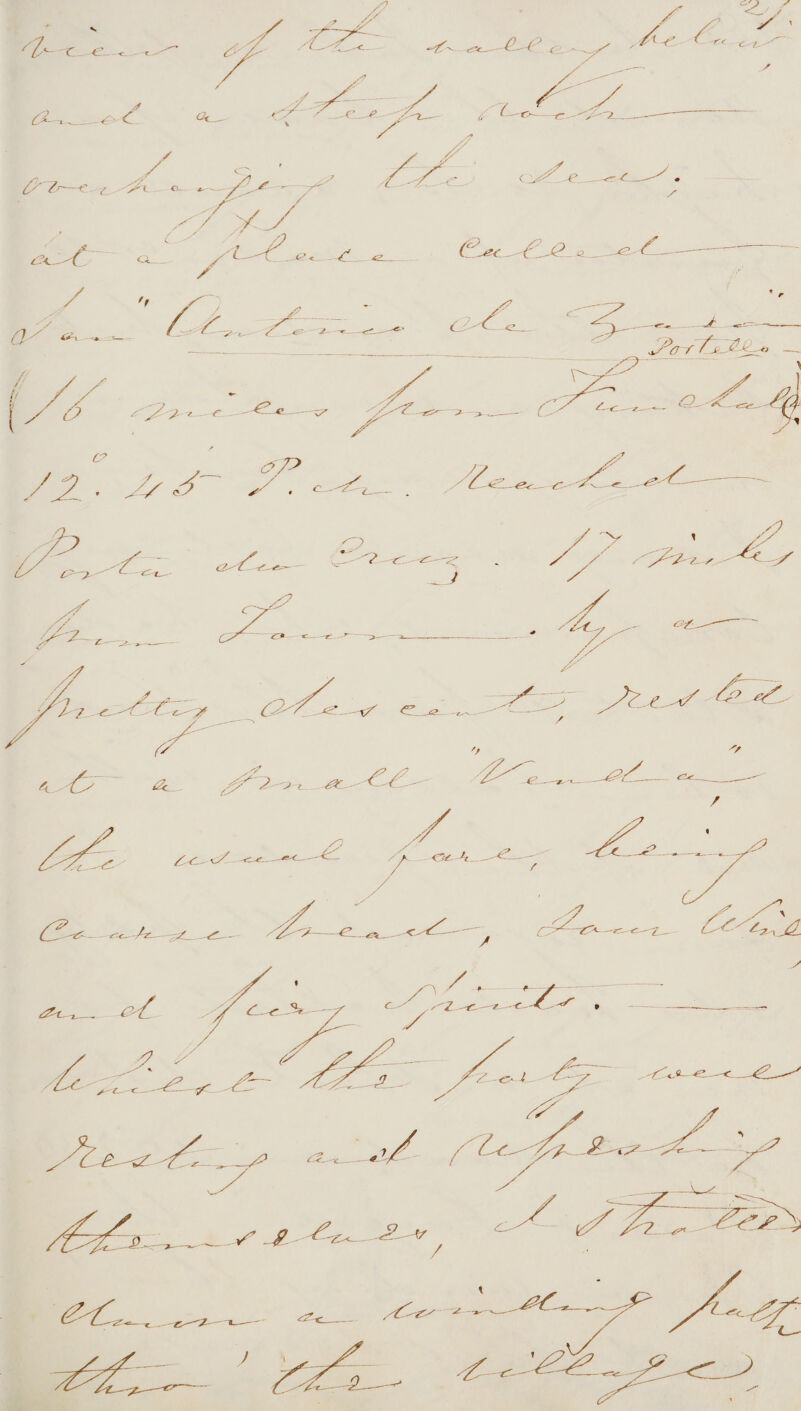 21.
view of the valley below
and a steep rock
overhanging the sea;
at a place called
San "Antonio da
Portella
(16 miles from Funchal)
12°. 45 P.M. Reached
Porta da Cruz. 17 miles
from Town. by a
pretty descent, rested
at a small "Venda",
the usual fare, being
Coarse bread, Sour Wine
and fiery Spirits.
Whilst the party were
resting and refreshing
themselves, I strolled
down a winding path
thro' the village,